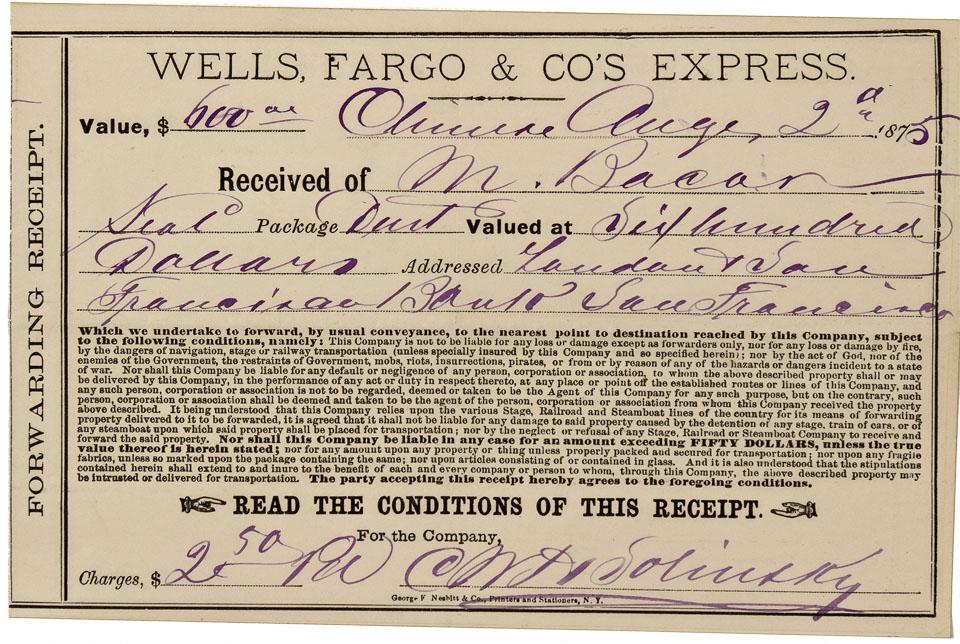 FORWARDING RECEIPT.
WELLS, FARGO & CO'S EXPRESS.
Value, $ 600 00 Chinese Aug. 2d 1875
Received of M. Bacon
Seal Package Dust Valued at Six hundred
Dollars Addressed London & San
Francisco Bank San Francisco
Which we undertake to forward, by usual conveyance, to the nearest point to destination reached by this Company, subject
to the following conditions, namely: This Company is not to be liable for any loss or damage except as forwarders only, nor for any loss or damage by fire,
by the dangers of navigation, stage or railway transportation (unless specially insured by this Company and so specified herein); nor by the act of God, nor of the
enemies of the Government, the restraints of Government, mobs, riots, insurrections, pirates, or from or by reason of any of the hazards or dangers incident to a state
of war. Nor shall this Company be liable for any default or negligence of any person, corporation or association, to whom the above described property shall or may
be delivered by this Company, in the performance of any act or duty in respect thereto, at any place or point off the established routes or lines of this Company, and
any such person, corporation or association is not to be regarded, deemed or taken to be the Agent of this Company for any such purpose, but on the contrary, such
person, corporation or association shall be deemed and taken to be the agent of the person, corporation or association from whom this Company received the property
above described. It being understood that this Company relies upon the various Stage, Railroad and Steamboat lines of the country for its means of forwarding
property delivered to it to be forwarded, it is agreed that it shall not be liable for any damage to said property caused by the detention of any stage, train of cars, or of
any steamboat upon which said property shall be placed for transportation; nor by the neglect or refusal of any Stage, Railroad or Steamboat Company to receive and
forward the said property. Nor shall this Company be liable in any case for an amount exceeding FIFTY DOLLARS, unless the true
value thereof is herein stated; nor for any amount upon any property or thing unless properly packed and secured for transportation; nor upon any fragile
fabrics, unless so marked upon the package containing the same; nor upon articles consisting of or contained in glass. And it is also understood that the stipulations
contained herein shall extend to and inure to the benefit of each and every company or person to whom, through this Company, the above described property may
be intrusted or delivered for transportation. The party accepting this receipt hereby agrees to the foregoing conditions.
READ THE CONDITIONS OF THIS RECEIPT.
For the Company,
Charges, $ 2 50 Pd Solinsky
George F Nesbitt & Co., Printers and Stationers, N. Y.